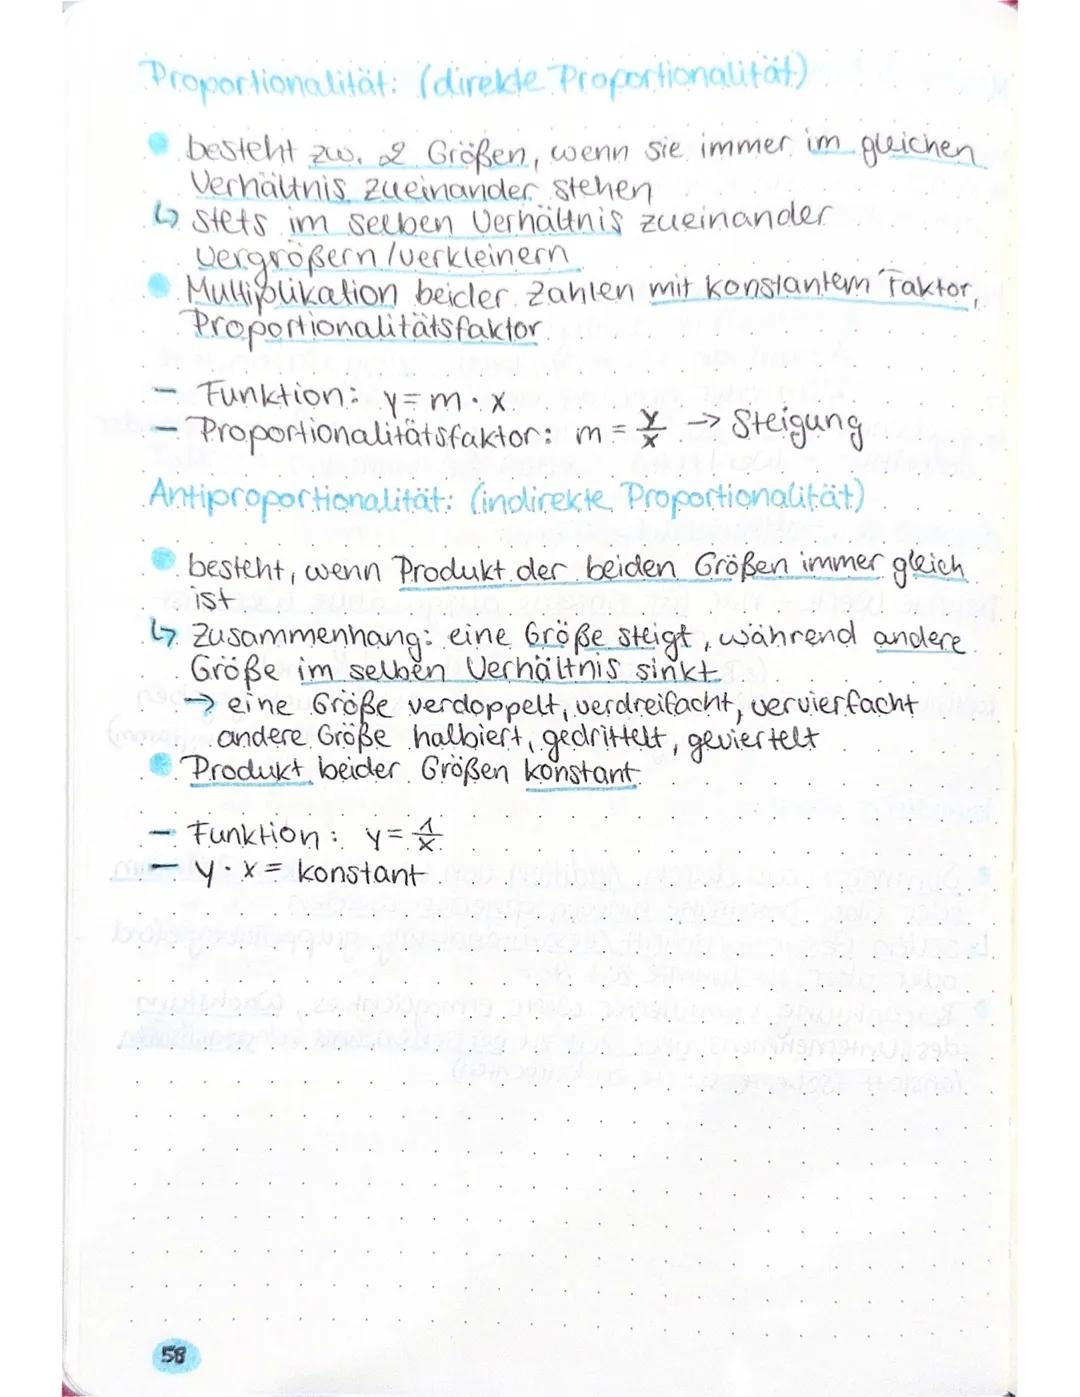 Proportionalität: (direkte Proportionalität)
besteht zw. 2 Größen, wenn sie immer im gleichen
Verhältnis zueinander stehen
↳ stets im selben Verhältnis zueinander
vergrößern/verkleinern
Multiplikation beider Zahlen mit konstantem Faktor,
Proportionalitätsfaktor
– Funktion: y = m · x
– Proportionalitätsfaktor: m = y/x → Steigung
Antiproportionalität: (indirekte Proportionalität)
besteht, wenn Produkt der beiden Größen immer gleich
ist
↳ Zusammenhang: eine Größe steigt, während andere
Größe im selben Verhältnis sinkt
→ eine Größe verdoppelt, verdreifacht, vervierfacht
andere Größe halbiert, gedrittelt, geviertelt
Produkt beider Größen konstant
– Funktion: y = 1/x
– y · x = konstant
58